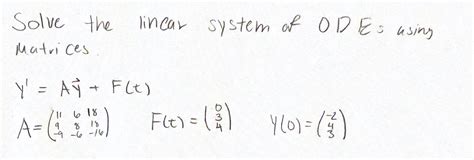 Solve the linear system of ODEs using
Matrices.
Y' = AY⃗ + F(t)
A = (11 6 18
9 8 18
-9 -6 -16) F(t) = (0
3
4) Y(0) = (-2
4
3)